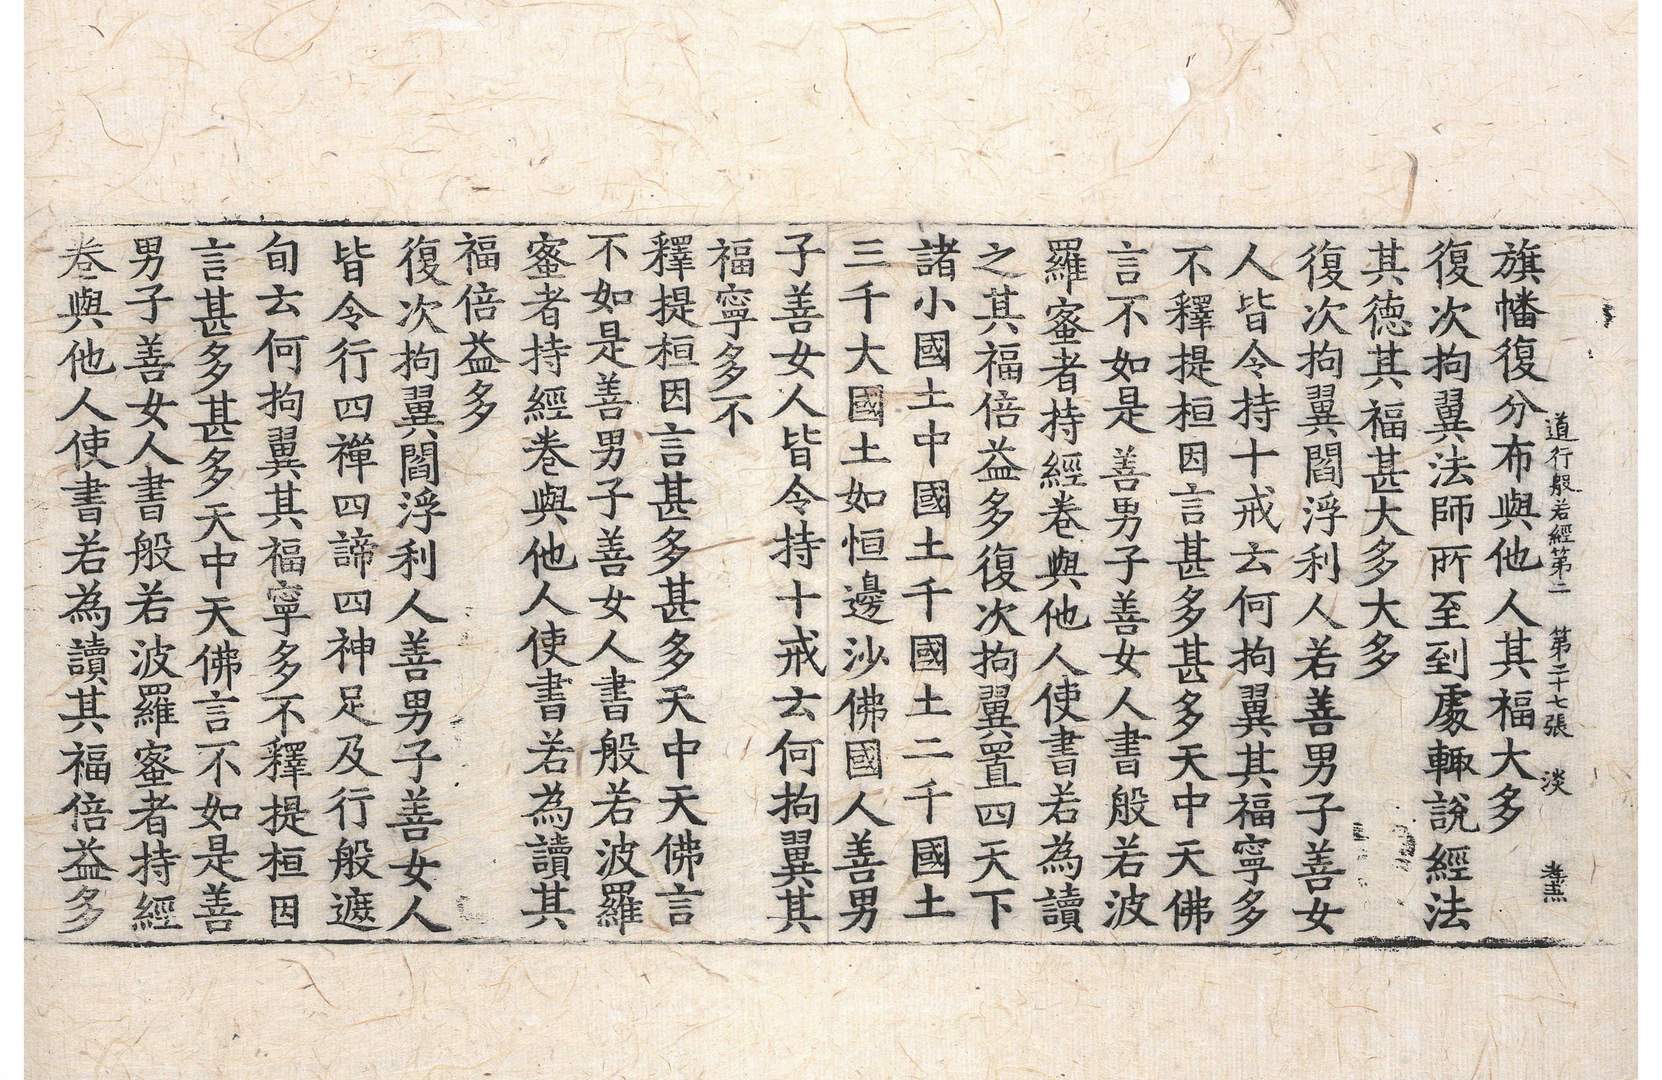 道行般若經第二 第二十七張 淡
旗幡復分布與他人其福大多
復次拘翼法師所至到處輒說經法
其德其福甚大多大多
復次拘翼閻浮利人若善男子善女
人皆令持十戒云何拘翼其福寧多
不釋提桓因言甚多甚多天中天佛
言不如是善男子善女人書般若波
羅蜜者持經卷與他人使書若為讀
之其福倍益多復次拘翼置四天下
諸小國土中國土千國土二千國土
三千大國土如恒邊沙佛國人善男
子善女人皆令持十戒云何拘翼其
福寧多不
釋提桓因言甚多甚多天中天佛言
不如是善男子善女人書般若波羅
蜜者持經卷與他人使書若為讀其
福倍益多
復次拘翼閻浮利人善男子善女人
皆令行四禪四諦四神足及行般遮
旬云何拘翼其福寧多不釋提桓因
言甚多甚多天中天佛言不如是善
男子善女人書般若波羅蜜者持經
卷與他人使書若為讀其福倍益多